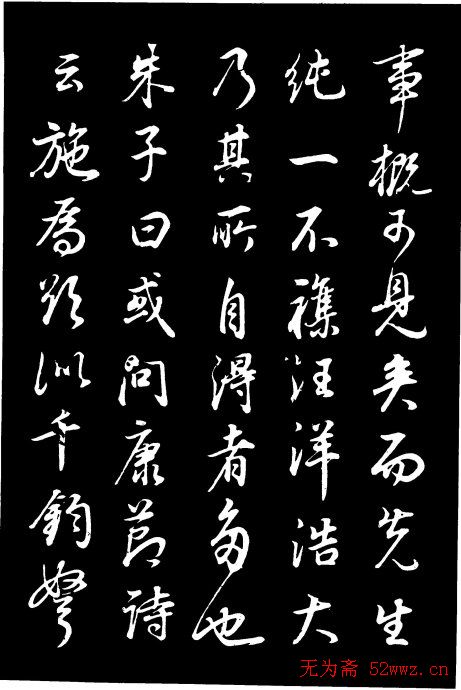 事概可見矣而先生
純一不襍汪洋浩大
乃其所自得者多也
朱子曰或問康節詩
云施爲欲似千鈞弩
无为斋 52wwz.cn